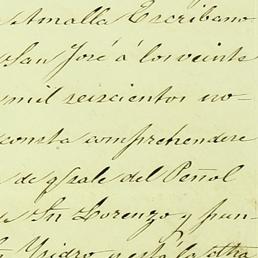 Amalla Escribano
San José á los veinte
mil seiscientos no-
consta comprehenderse
de qsale del Peñol
Sn Lorenzo y pun-
Ysidro y está la otra